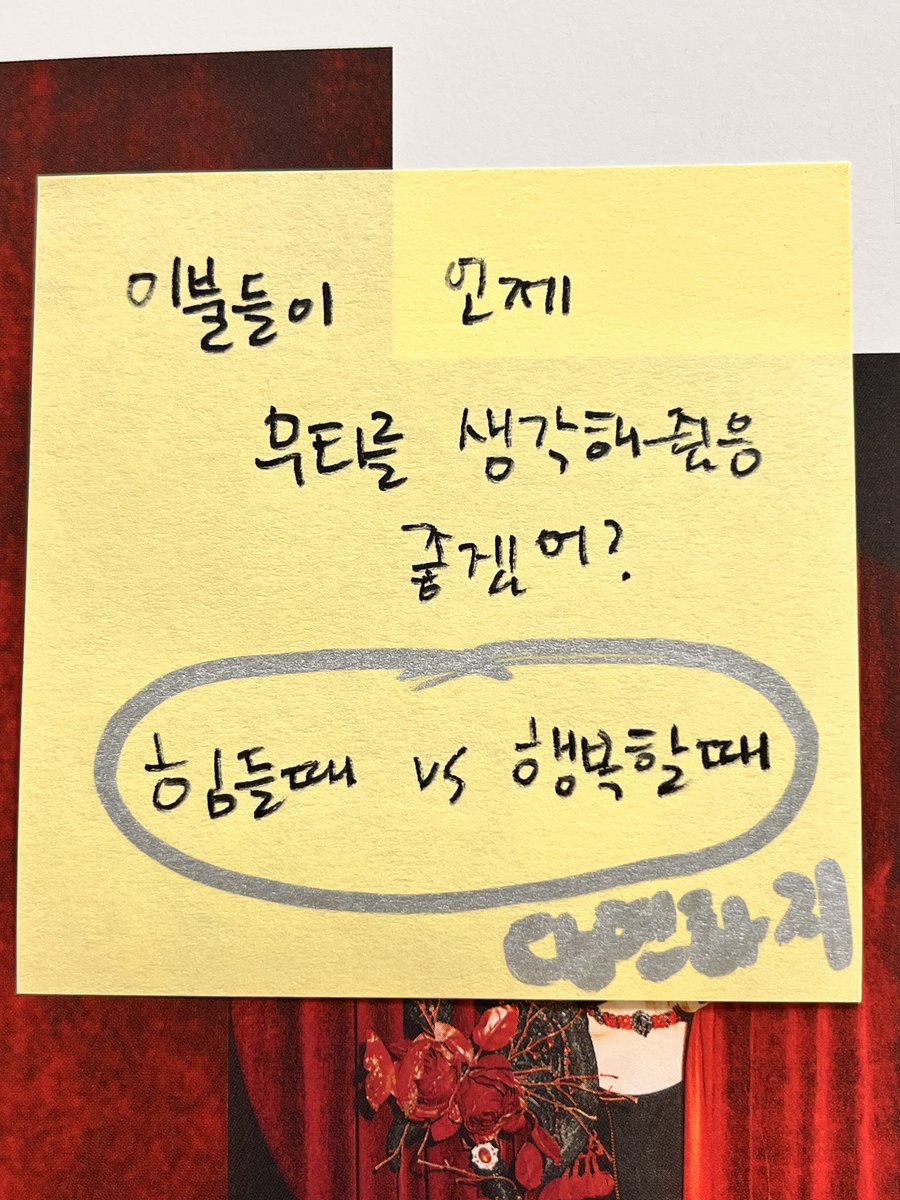 이불들이 언제
우티를 생각해줬음
좋겠어?
힘들때 vs 행복할때
당연하지